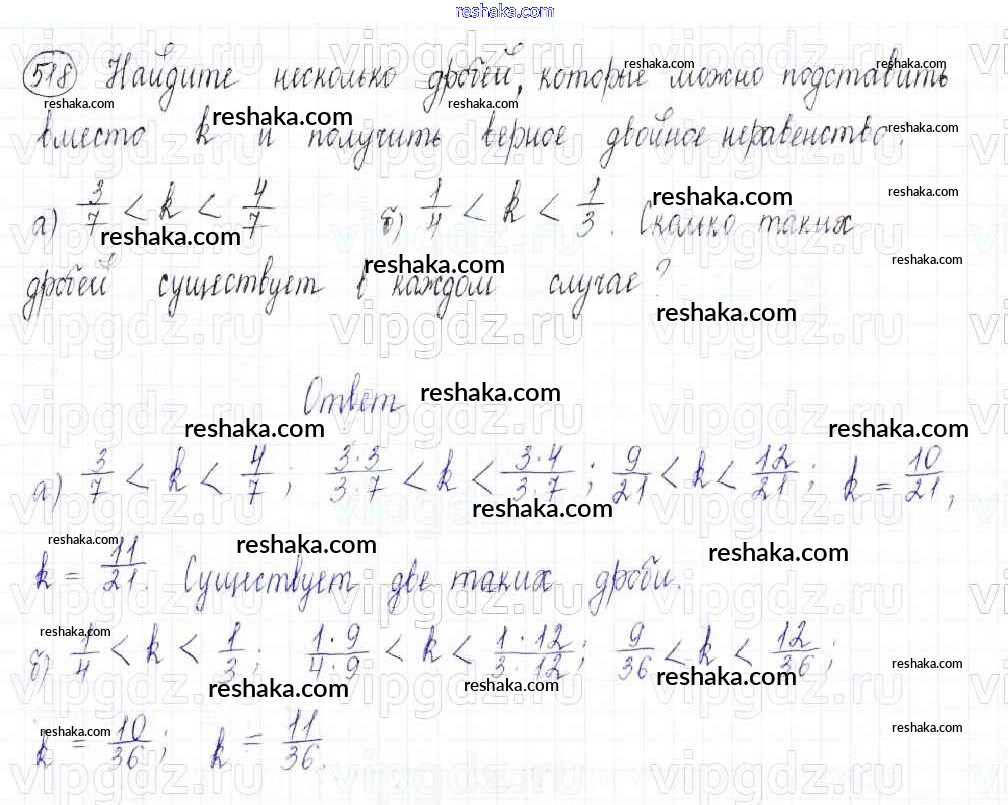 reshaka.com
518 Найдите несколько дробей, которые можно подставить
вместо k и получить верное двойное неравенство.
а) 3/7 < k < 4/7 б) 1/4 < k < 1/3. Сколько таких
дробей существует в каждом случае?
Ответ
а) 3/7 < k < 4/7; 3·3/3·7 < k < 3·4/3·7; 9/21 < k < 12/21; k = 10/21,
k = 11/21. Существует две таких дроби.
б) 1/4 < k < 1/3; 1·9/4·9 < k < 1·12/3·12; 9/36 < k < 12/36;
k = 10/36; k = 11/36.